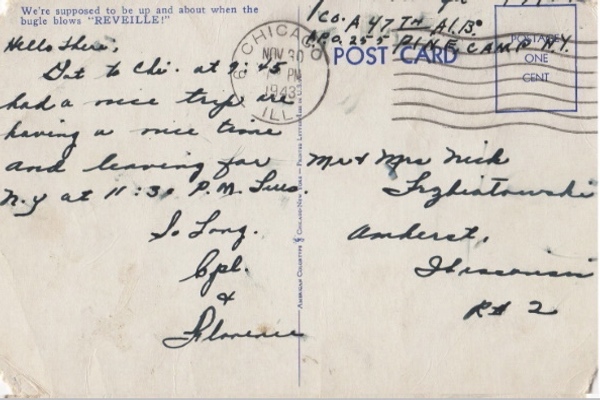 We're supposed to be up and about when the
bugle blows "REVEILLE!"
Hello There,
Got to Chi. at 9:45
had a nice trip are
having a nice time
and leaving for
N.Y at 11:30 P.M. Tues.
So Long.
Cpl.
&
Florence
CHICAGO
NOV 30
PM
1943
ILL.
Co. A 47TH A.I.B.
A.P.O. 255 PINE CAMP N.Y.
POST CARD
POSTAGE
ONE
CENT
Mr & Mrs Nick
Trzbiatowski
Amherst,
Wisconsin
R# 2